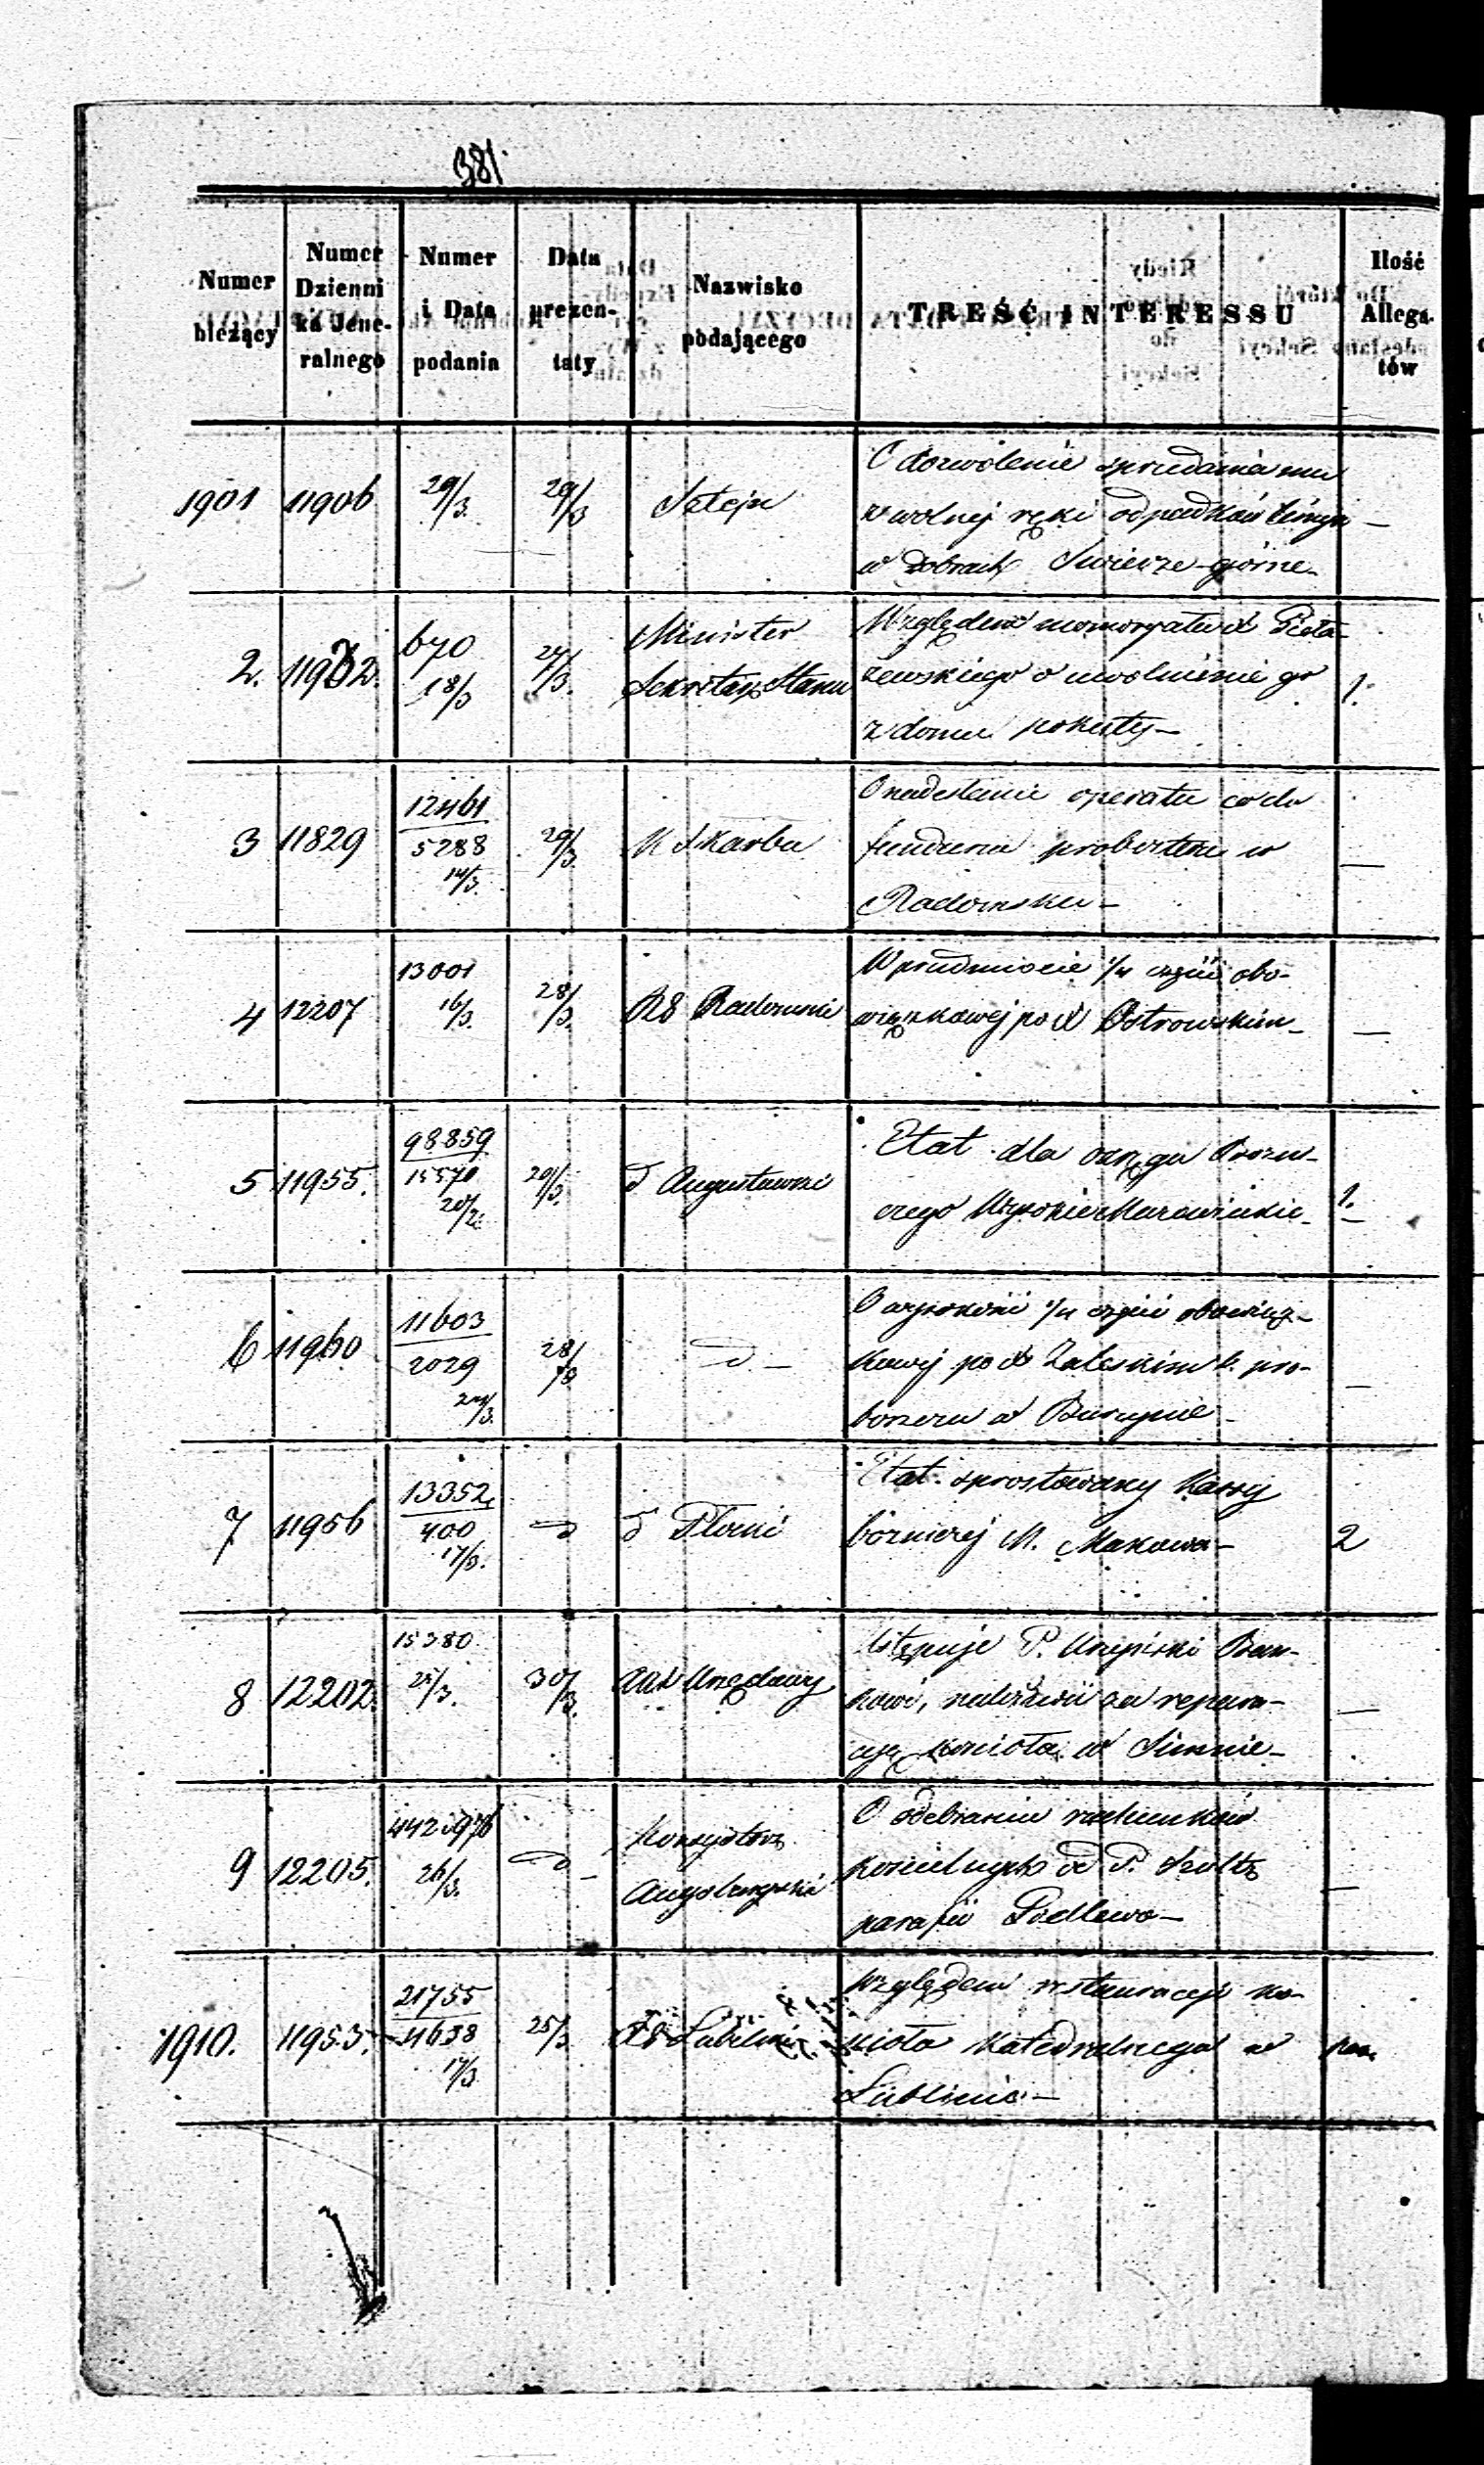 381.
Numer bieżący | Numer Dziennika Jeneralnego | Numer i Data podania | Data prezentaty | Nazwisko podającego | TREŚĆ INTERESSU | Ilość Allegatów
1901 | 11906 | 29/3. | 29/3
O dozwolenie sprzedania mu
z wolnej ręki odpadków
w dobrach Swierże górne
2. | 670 18/3 | 27/3. | Minister
Sekretarz Stanu | 1.
Względem
o uwolnienie go
z domu pokuty
3 | 11829 | 12461 / 5288 14/3. | 29/3. | K Skarbu | —
O nadesłanie operatu co do
funduszu probostwa w
Radomsku
4 | 12207 | 13001 16/3. | 28/3. | RG Radomski | —
W przedmiocie 1/4 części obo-
wiązkowej po X Ostrowskim
5 | 11955. | 98859 / 15570 20/2. | 29/3. | d Augustowski | 1.
Etat dla okręgu Bożni-
czego Wysokie Mazowieckie
6 | 11960 | 11603 / 2029 | 28/3 | d | —
O wysokości 1/4 części obowiąz-
kowej po X Zaleskim b. pro-
boszczu w
7 | 11956 | 13352 / 400 17/3. | d | d Płocki | 2
Etat sprostowany Kassy
bóżniczej M. Makowa
8 | 12202. | 15380 25/3. | 30/3. | —
P. Krupiski Ban-
kowi, należność za repara-
cyę kościoła w Simnie
9 | 12205. | 26/3. | d | Konsystorz
Augsburgski | —
O odebranie rachunków
kościelnych od P. Szoltz
parafii
1910. | 11953. | 21755 / 11638 17/3 | 25/3 | RG Lubelski
Względem restauracyi ko-
ścioła Katedralnego w
Lublinie